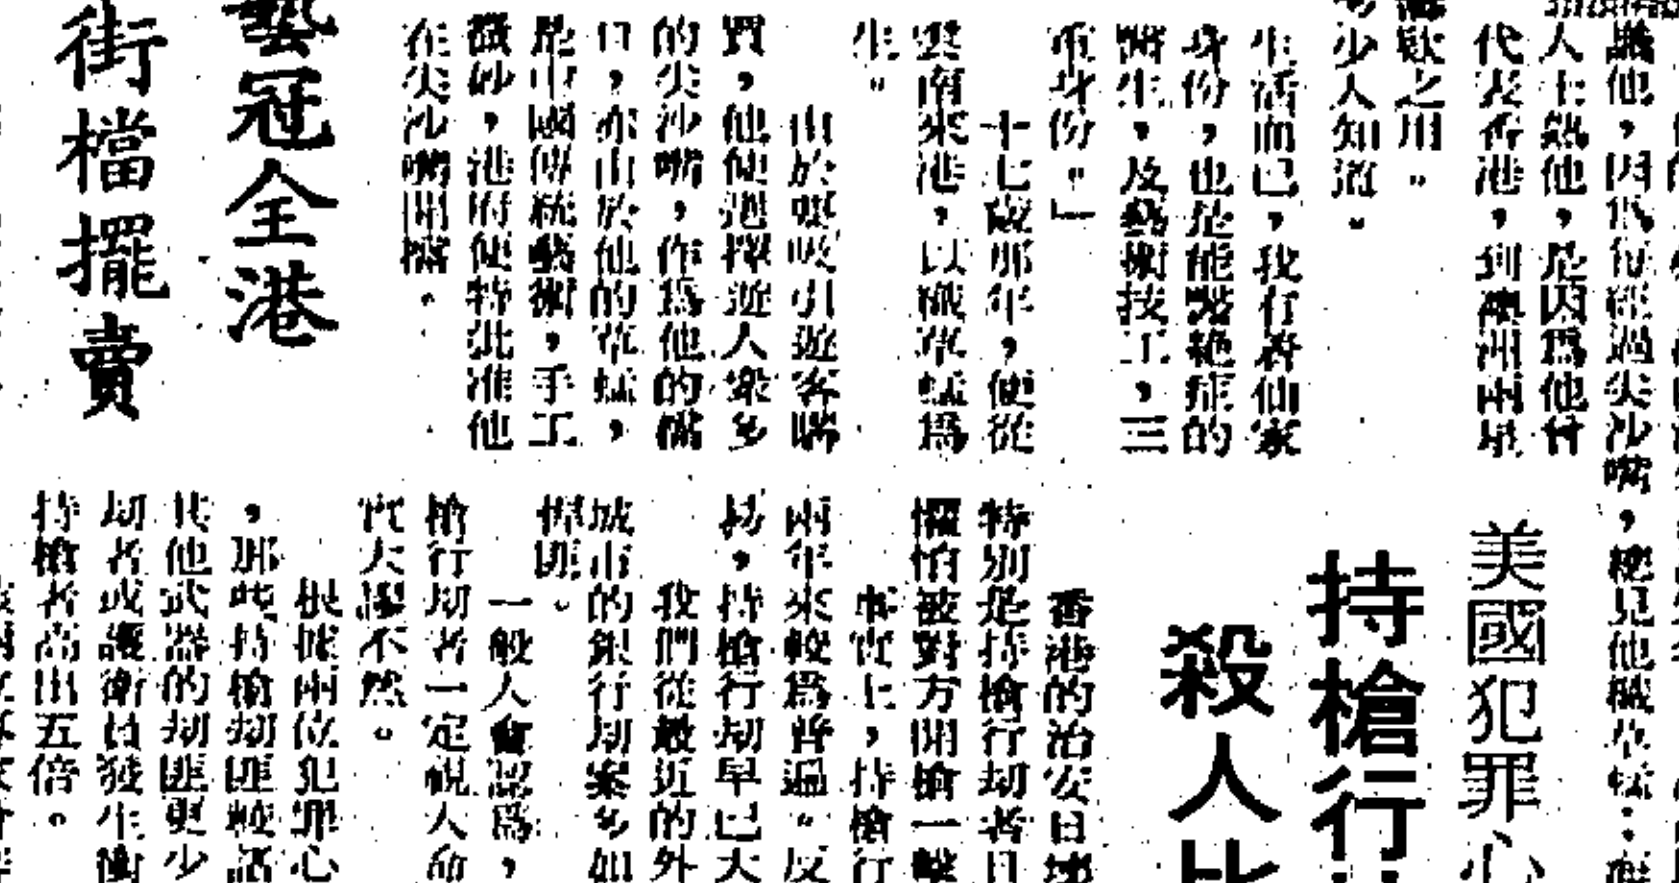 議他，因爲每經過尖沙嘴，總見他織草蜢
人士熟他，是因爲他曾
代表香港，到澳洲兩星
少人知道。
歡之用。
生活而已，我有著仙家
身份，也是能醫絕症的
醫生，及藝術技工，三
重身份。」
十七歲那年，便從
雲南來港，以織草蜢爲
生。
由於要吸引遊客購
買，他便選擇遊人衆多
的尖沙嘴，作爲他的檔
口，亦由於他的草蜢，
是中國傳統藝術，手工
微妙，港府便特批准他
在尖沙嘴開檔。
藝冠全港
街檔擺賣
美國犯罪心
持槍行
殺人比
香港的治安日壞
特別是持槍行劫者日
懼怕被對方開槍一擊
事實上，持槍行
兩年來較爲普遍。反
易，持槍行劫早已大
我們從最近的外
城市的銀行劫案多如
悍匪。
一般人會認爲，
槍行劫者一定視人命
實大謬不然。
根據兩位犯罪心
，那些持槍劫匪較諸
其他武器的劫匪更少
劫者或護衛員發生衝
持槍者高出五倍。